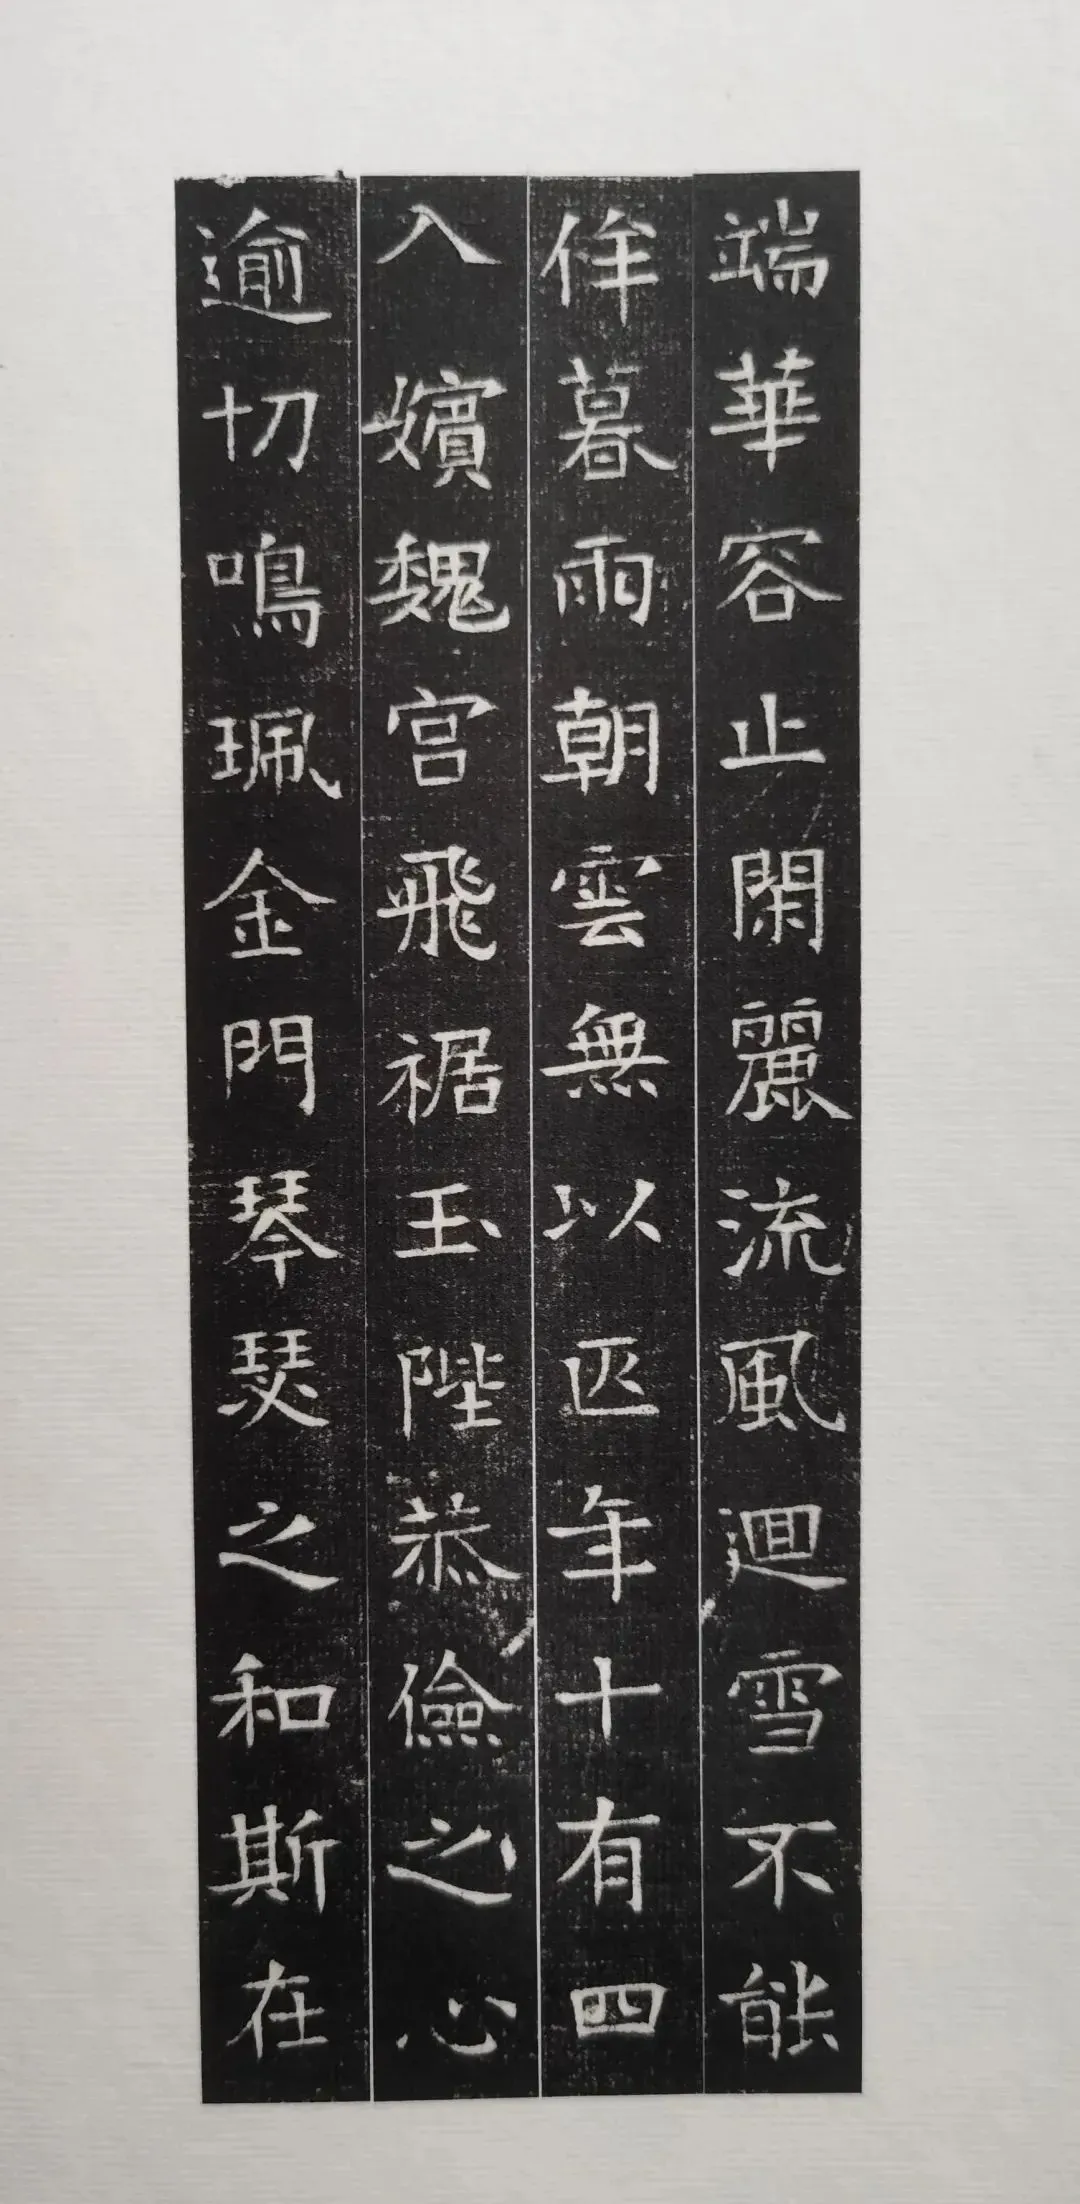 端華容止閑麗流風迴雪不能
侔暮雨朝雲無以匹年十有四
入嬪魏宫飛裾玉陛恭儉之心
逾切鳴珮金門琴瑟之和斯在